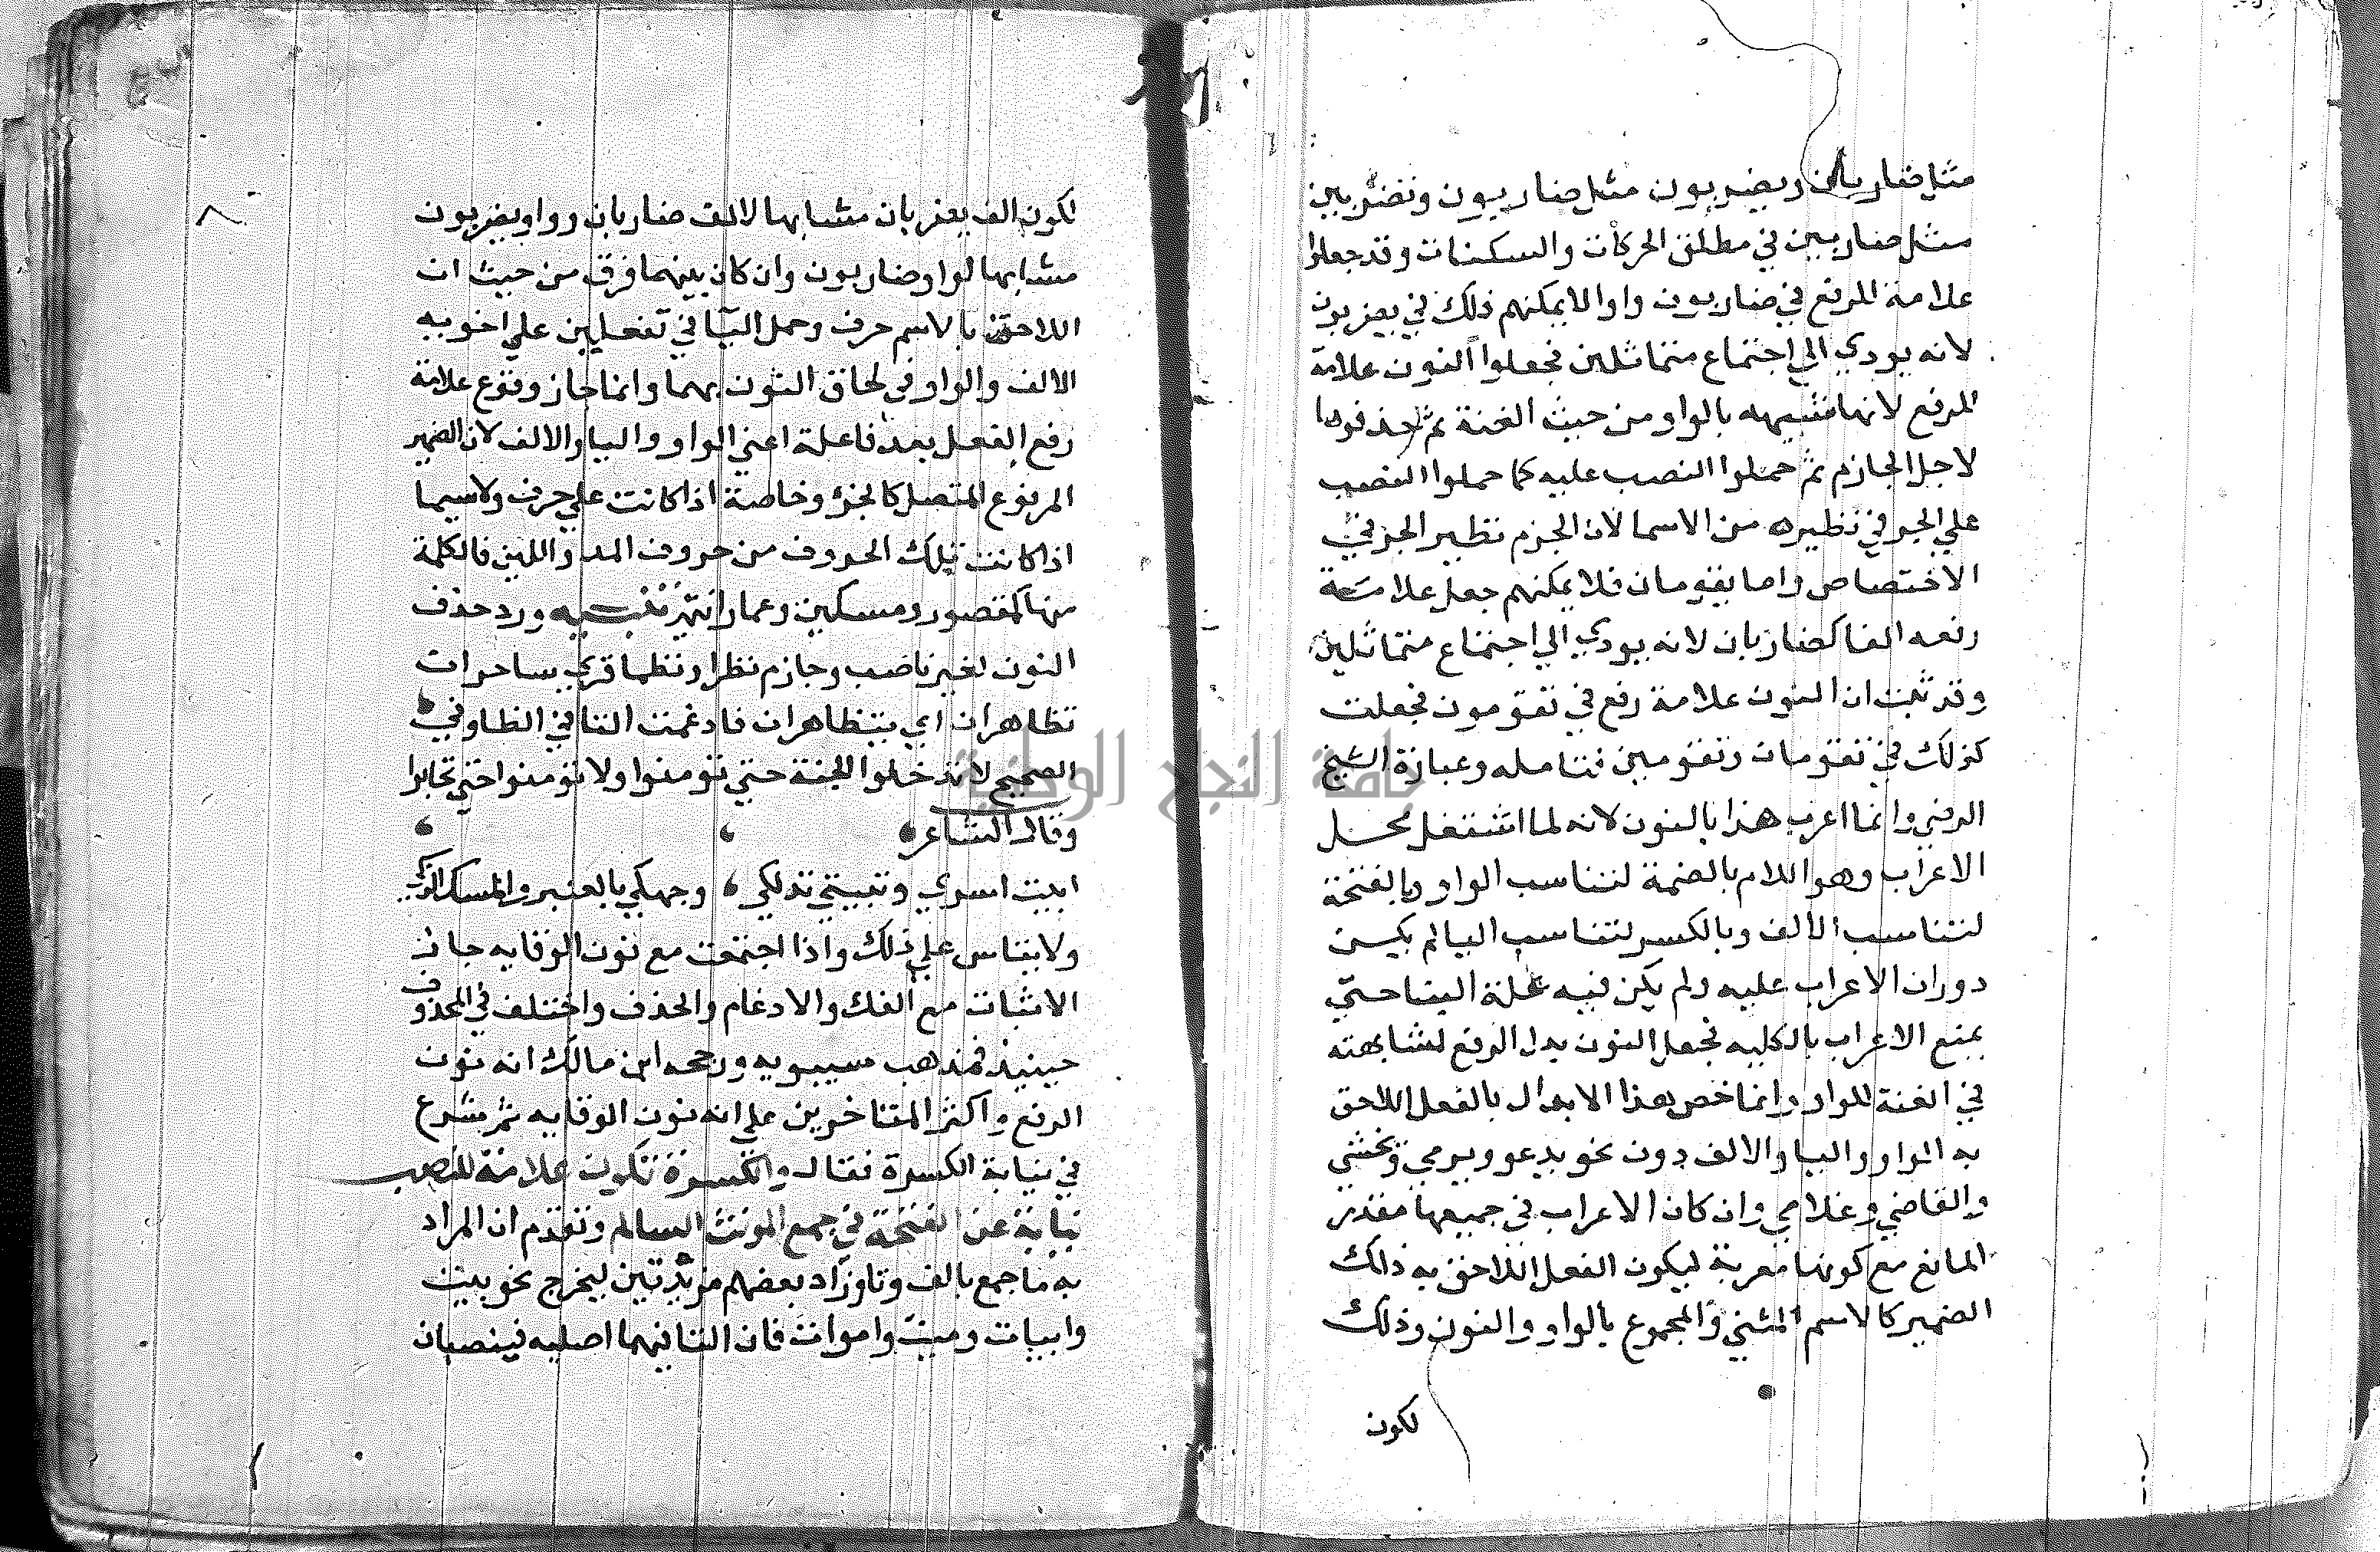 مثل ضاربان ويضربون مثل ضاربون وتضربين
مثل ضاربين في مطلق الحركات والسكنات وقد جعلوا
علامة الرفع في ضاربون واوا لا يمكنهم ذلك في يضربون
لانه يودي الي اجتماع متماثلين فجعلوا النون علامة
الرفع لانها تشبهه بالواو من حيث الغنة ثم حذفوها
لاجل الجازم ثم حملوا النصب عليه كما حملوا النصب
علي الجر في نظيره من الاسما لان الجزم نظير الجر في
الاختصاص واما يقومان فلا يمكنهم جعل علامة
رفعه الفا كضاربان لانه يودي الي اجتماع متماثلين
وقد ثبت ان النون علامة رفع في تقومون فجعلت
كذلك في تقومان وتقومين فتامله وعبارة الشيخ
الرضي وانما اعرب هذا بالنون لانه لما اشتغل محل
الاعراب وهو اللام بالضمة لتناسب الواو وبالفتحة
لتناسب الالف وبالكسر لتناسب اليا لم يكن
دوران الاعراب عليه ولم يكن فيه علة البنا حتي
يمنع الاعراب بالكليه فجعل النون بدل الرفع لمشابهته
في الغنة للواو وانما خص بهذا الابدال بالفعل اللاحق
به الواو واليا والالف دون نحو يدعو ويرمي ويخشي
والقاضي وغلامي وان كان الاعراب في جميعها مقدر
المانع مع كونها معربة ليكون الفعل اللاحق به ذلك
الضمير كالاسم المثني والمجموع بالواو والنون وذلك
لكون
لكون الف يضربان مشابها لالف ضاربان وواو يضربون
مشابها لواو ضاربون وان كان بينهما فرق من حيث ان
اللاحق بالاسم حرف وحمل اليا في تفعلين علي اخويه
الالف والواو في لحاق النون بهما وانما جاز وقوع علامة
رفع الفعل بعد فاعلة اعني الواو واليا والالف لان الضمير
المرفوع المتصل كالجزؤ وخاصة اذا كانت علي حرف ولاسيما
اذا كانت تلك الحروف من حروف المد واللين فالكلمة
منها كمنصور ومسكين وعمار انتهي تنبيه ورد حذف
النون لغير ناصب وجازم نظرا ونظما قري ساحران
تظاهران اي يتظاهران فادغمت التا في الظا وفي
الصحيح لا تدخلوا الجنة حتي تومنوا ولا تومنوا حتي تحابوا
وقال الشاعر
ابيت اسري وتبيتي تدلكي وجهكي بالعنبر والمسك الذكي
ولا يقاس علي ذلك واذا اجتمعت مع نون الوقايه جاز
الاثبات مع الفك والادغام والحذف واختلف في المحذوف
حينيذ فمذهب سيبويه ورجحه ابن مالك انه نون
الرفع واكثر المتاخرين علي انه نون الوقايه ثم شرع
في نيابة الكسرة فقال والكسرة تكون علامة للنصب
نيابة عن الفتحة في جمع المونث السالم وتقدم ان المراد
به ما جمع بالف وتا وزاد بعضهم مزيدتين ليخرج نحو بيت
وابيات وميت واموات فان التا فيهما اصليه فينصبان
جامعة النجاح الوطنية